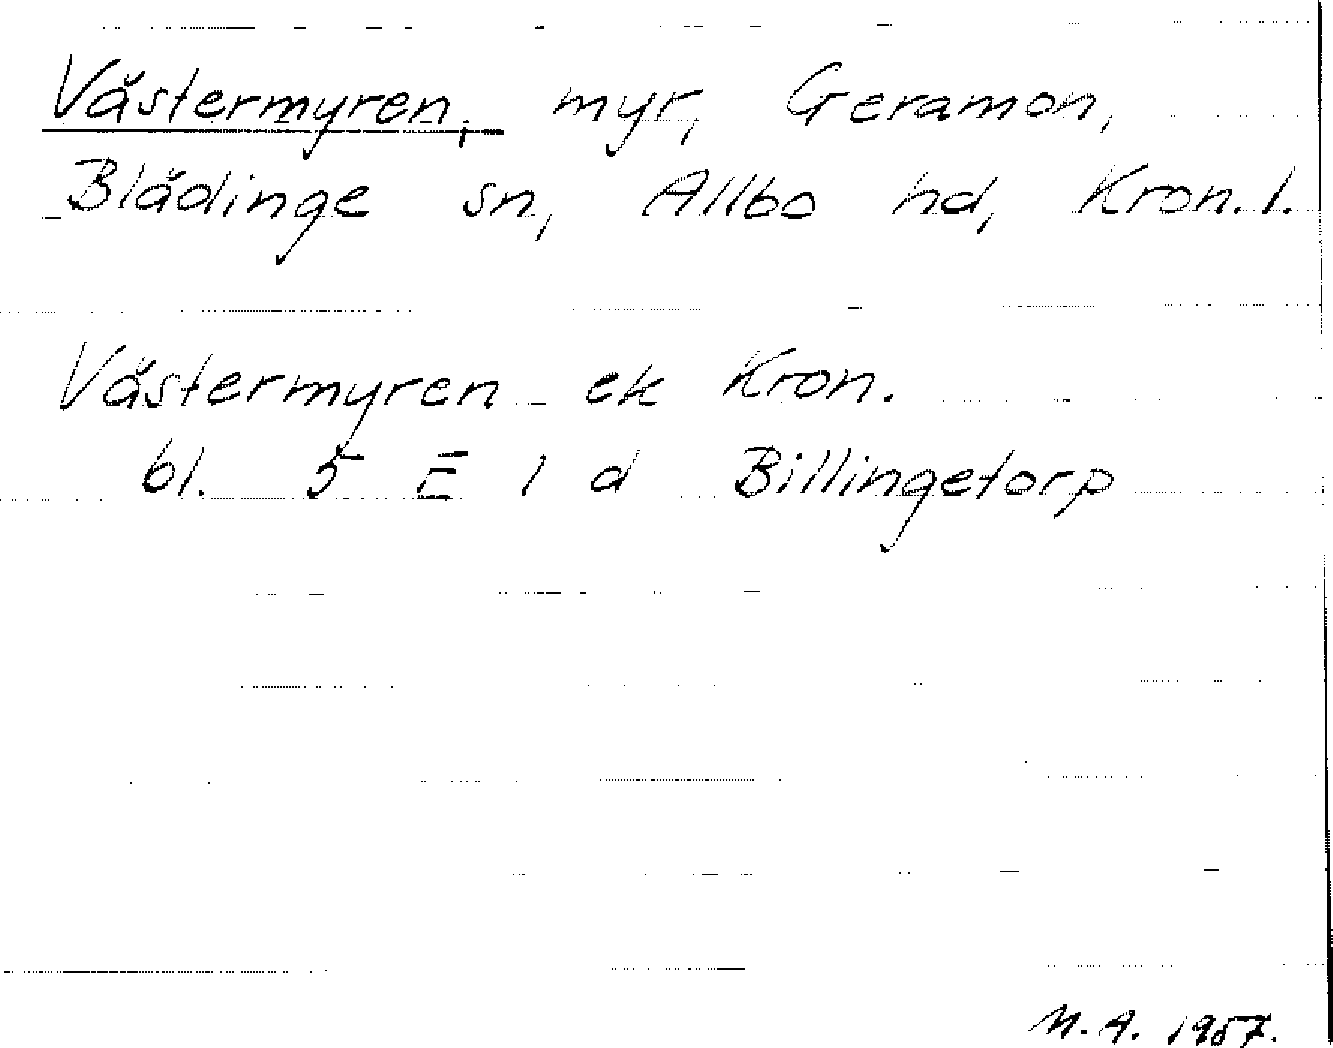 Västermyren, myr, Geramon,
Blädinge sn, Allbo hd, Kron. l.
Västermyren ek Kron.
bl. 5 E 1 d Billingetorp
M.A. 1957.